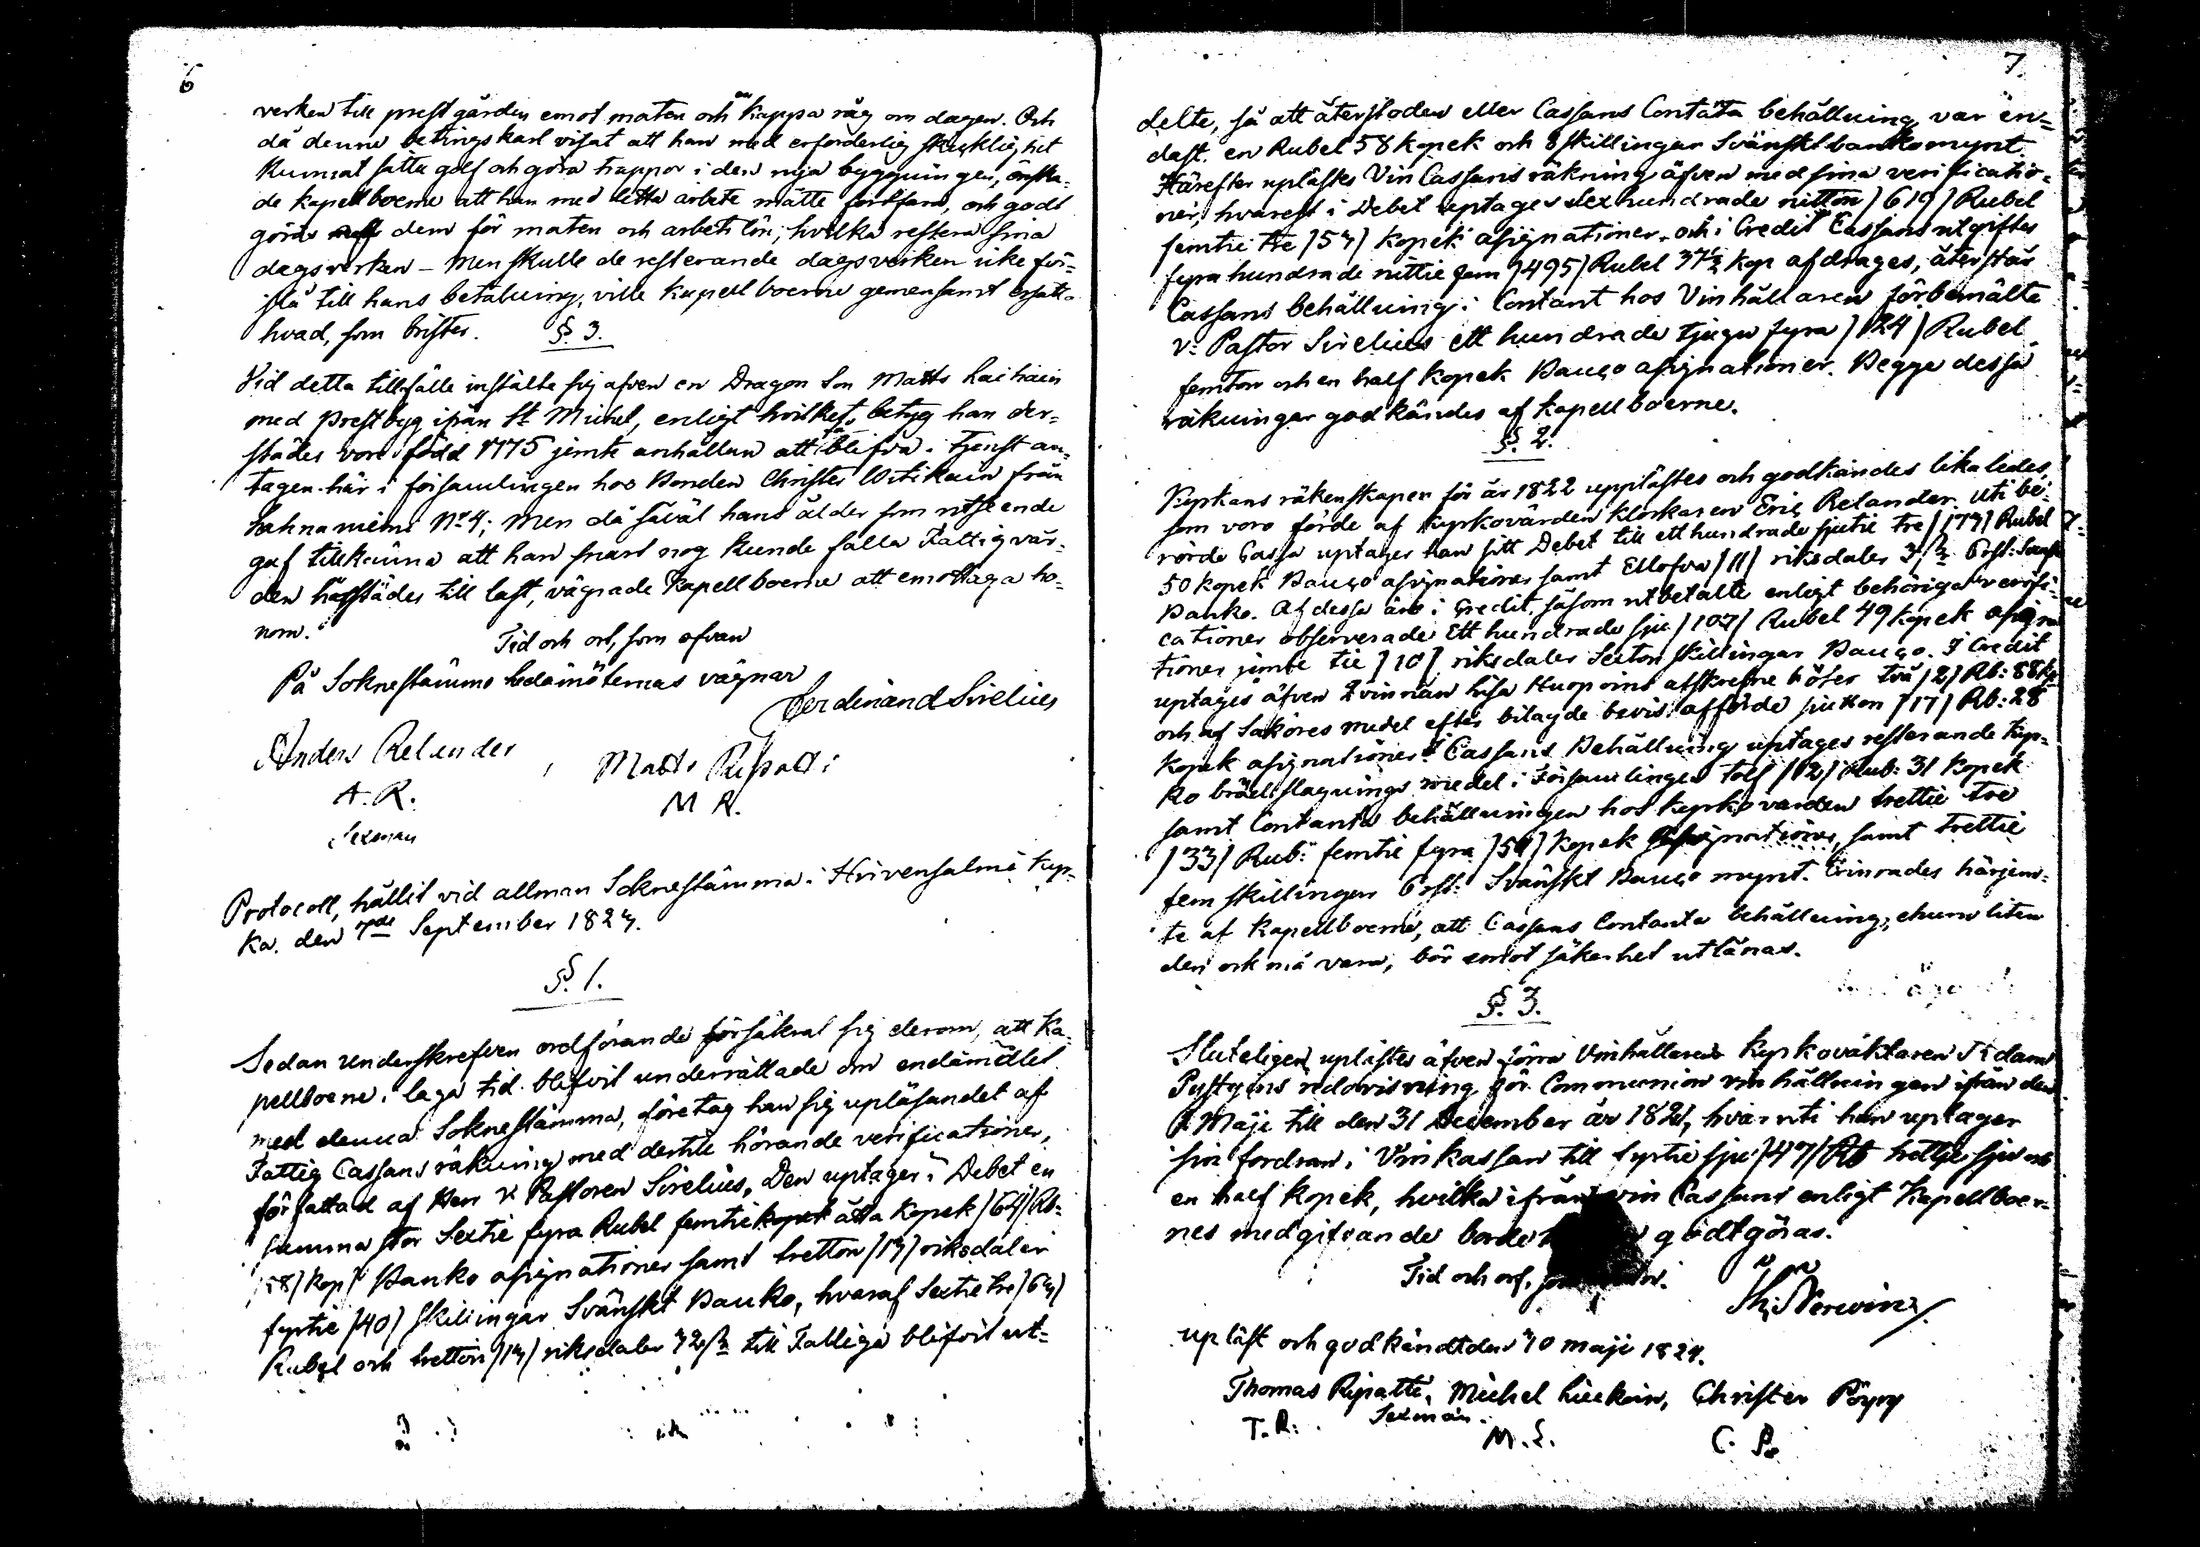 6
verken till prestgården emot maten och en kappa råg om dagen. Och
då denne betingskarl visat att han med erforderlig skicklighet
kunnat sätta golf och göra trappor i den nya byggningen, önska-
de kapellboerne att han med detta arbete måtte fortfara, och godt
göra dem för maten och arbetslön, hvilka restera sina
dagsverken – Men skulle de resterande dagsverken icke för-
slå till hans betalning, ville kapellboerne gemensamt ersätta
hvad, som brister.
§. 3.
Vid detta tillfälle instälte sig äfven en Dragon Son Matts Laitiain
med Prestbeyg ifrån St Michel, enligt hvilket betyg han der-
städes vore född 1775 jemte anhållan att få blifva i tjenst an-
tagen här i församlingen hos Bonden Christer Utikain från
Hahnaniemi No 4; Men då såväl hans ålder som utseende
gaf tillkänna att han snart nog kunde falla Fattigvår-
den härstädes till last, vägrade Kapellboerne att emottaga ho-
nom.
Tid och ort, som ofvan
På Soknestämmo ledamöternas vägnar
Ferdinand Sirelius
Anders Relander, Matts Ripatti
A. R. M R.
Sexman
Protocoll, hållit vid allmän Soknestämma i Hirvensalmi Kyr-
ka den 7de September 1823.
§. 1.
Sedan underskrefven ordförande försäkrat sig derom, att Ka-
pellboerne i laga tid blifvit underrättade om endamålet
med denna Soknestämma, företog han sig upläsandet af
Fattig Cassans räkning med dertill hörande verificationer,
författad af Herr V Pastoren Sirelius, Den uptager i Debet en
summa stor Sextie fyra Rubel femtie kopek åtta Kopek /64/ Rb:
/58/ kop: Banko assignationer samt tretton /13/ riksdaler
fyrtie /40/ skillingar Svänskt Banko, hvaraf Sextie tre /63/
Rubel och tretton /13/ riksdaler 32 s till Fattiga blifvit ut-
7.
delte, så att återstoden eller Cassans Contata behållning var en-
dast en Rubel 58 kopek och 8 skillingar Svänskt bankomynt
Härefter uplästes Vin Cassans räkning äfven med sina verificatio-
ner, hvarest i Debet uptages Sexhundrade nitton /619/ Rubel
femtie tre /53/ kopek assignationer, och i Credit Cassans utgifter
fyra hundrade nittie fem /495/ Rubel 37½ kop afdrages, återstår
Cassans behållning i Contant hos Vinhållaren förbemälte
V: Pastor Sirelius ett hundrade tjugu fyra /124/ Rubel
femton och en half kopek Banco assignationer. Begge dessa
räkningar godkändes af kapellboerne.
§. 2.
Kyrkans räkenskapen för år 1822 upplästes och godkändes likaledes,
som voro förde af kyrkovärden Klockaren Eric Relander. Uti be-
rörde Cassa uptager han sitt Debet till ett hundrade sjutie tre /173/ Rubel
50 kopek Banco assignationer samt Ellofva /11/ riksdaler
Banko. Af dessa äro i Credit, såsom utbetalte enligt behöriga verifi-
cationer observerade Ett hundrade sju /107/ Rubel 49 kopek assigna
tioner jemte tie /10/ riksdaler Sexton skillingar Banco. I Credit
uptages äfven Qvinnan Lisa Huopoins afskrefne böter två /2/ Rb: 88 k
och af Saköres medel efter bilagde bevis afförde sjutton /17/ Rb: 28
kopek assignationer. I Cassans Behållning uptages resterande Kyr-
ko brädslagnings medel i Församlingen tolf /12/ Rub: 31 Kopek
samt Contanta behållningen hos kyrkovärden trettie tre
/33/ Rub: femtie fyra /54/ kopek assignationer, samt trettie
fem skillingar Svänskt Banco mynt. Erinrades härjem-
te af kapellboerne, att Cassans Contanta behållning, ehuru liten
den ock må vara, bör emot säkerhet utlånas.
§. 3.
Sluteligen uplästes äfven förra Vinhållarens Kyrkoväktaren Adam
Pystyins redovisning för Communion vinhållningen ifrån den
1 Maji till den 31 December år 1821, hvaruti han uptager
sin fordran i Vinkassan till fyrtie sju /47/ Rb trettie sju och
en half kopek, hvilka ifrån vin Cassans enligt Kapellboer-
nes medgifvande borde godtgöras.
Tid och ort,
upläst och godkändt den 30 Maji 1824.
Thomas Ripatti, Michel Liukoin, Christer Pöyry
T. R. Sexman. M. L. C. P.